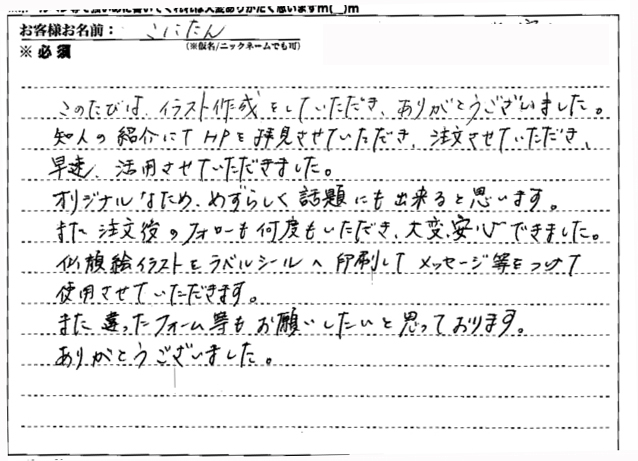 お客様お名前： こにたん
※必須 （※仮名/ニックネームでも可）
このたびは、イラスト作成をしていただき、ありがとうございました。
知人の紹介にてHPを拝見させていただき、注文させていただき、
早速、活用させていただきました。
オリジナルなため、めずらしく話題にも出来ると思います。
また注文後のフォローも何度もいただき、大変、安心できました。
似顔絵イラストをラベルシールへ印刷してメッセージ等をつけて
使用させていただきます。
また違ったフォーム等もお願いしたいと思っております。
ありがとうございました。